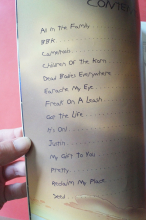 CONTE
All In The Family
BBK
Cameltosis
Children Of The Korn
Dead Bodies Everywhere
Earache My Eye
Freak On A Leash
Got The Life
It's On!
Justin
My Gift To You
Pretty
Reclaim My Place
Seed